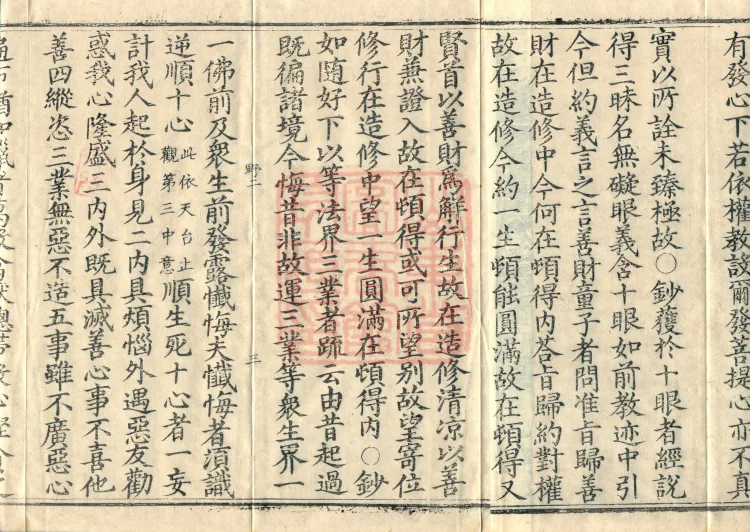 有發心下若依權教設爾發菩提心亦不真
實以所詮未臻極故〇鈔獲於十眼者經說
得三昧名無礙眼義含十眼如前教迹中引
今但約義言之言善財童子者問准旨歸善
財在造修中今何在頓得內荅旨歸約對權
故在造修今約一生頓能圓滿故在頓得又
賢首以善財爲解行生故在造修清凉以善
財兼證入故在頓得或可所望別故望寄位
修行在造修中望一生圓滿在頓得內〇鈔
如隨好下以等法界三業者䟽云由昔起過
既徧諸境今悔昔非故運三業等衆生界一
野二
三
一佛前及衆生前發露懺悔夫懺悔者須識
逆順十心此依天台止觀第三中意順生死十心者一妄
計我人起於身見二內具煩惱外遇惡友勸
惑我心隆盛三內外既具滅善心事不喜他
善四縱恣三業無惡不造五事雖不廣惡心